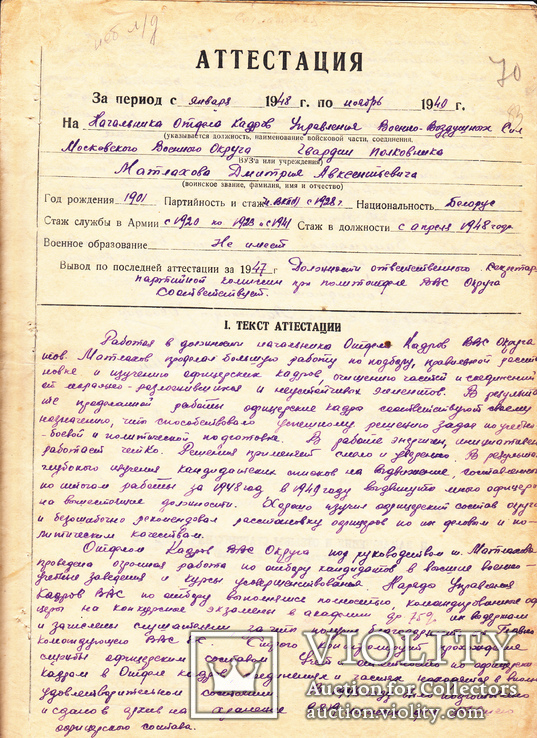 70
АТТЕСТАЦИЯ
За период с января 1948 г. по ноябрь 1940 г.
На Начальника Отдела Кадров Управления Военно-Воздушных Сил
(указывается должность, наименование войсковой части, соединения,
Московского Военного Округа Гвардии полковника
ВУЗ'а или учреждения)
Матлахова Дмитрия Авксентьевича
(воинское звание, фамилия, имя и отчество)
Год рождения 1901 Партийность и стаж ВКП(б) с 1928 г. Национальность Белорус
Стаж службы в Армии с 1920 по 1923 и с 1941 Стаж в должности с апреля 1948 года
Военное образование Не имеет
Вывод по последней аттестации за 1947 г. Должности ответственного секретаря
партийной комиссии при политотделе ВВС Округа
соответствует.
I. ТЕКСТ АТТЕСТАЦИИ
Работая в должности начальника Отдела Кадров ВВС Округа
тов. Матлахов проделал большую работу по подбору, правильной расста
новке и изучению офицерских кадров, очищению частей и соединений
от морально-разложившихся и неустойчивых элементов. В результа
те проделанной работы офицерские кадры соответствуют своему
назначению, что способствовало успешному решению задач по учебно
боевой и политической подготовке. В работе энергичен, инициативен
работает чётко. Решения принимает смело и уверенно. В результате
глубокого изучения кандидатских списков на выдвижение, составленных
по итогам работы за 1948 год в 1949 году выдвинуто много офицеров
на вышестоящие должности. Хорошо изучил офицерский состав округа
и безошибочно рекомендовал расстановку офицеров по их деловым и по
литическим качествам.
Отделом Кадров ВВС Округа под руководством т. Матлахова
проведена огромная работа по отбору кандидатов в высшие военно
учебные заведения и курсы усовершенствования. Наряды Управления
Кадров ВВС по отбору выполнялись полностью, командированные офи
церы на конкурсные экзамены в академии до 75% их выдержали
и зачислены слушателями за что получил благодарность Главно
командующего ВВС
службы офицерским составом. Учёт
кадрам в Отделе кадров, соединениях и частях находится в
удовлетворительном состоянии
и сдаются архив на хранение
офицерского состава.
VIOLITY
Auction for Collectors
auction-violity.com